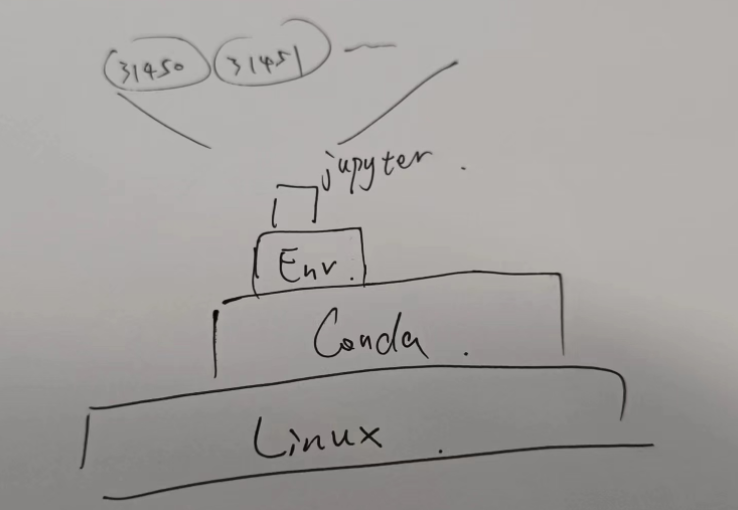 31450 31451
jupyter.
Env.
Conda.
Linux.